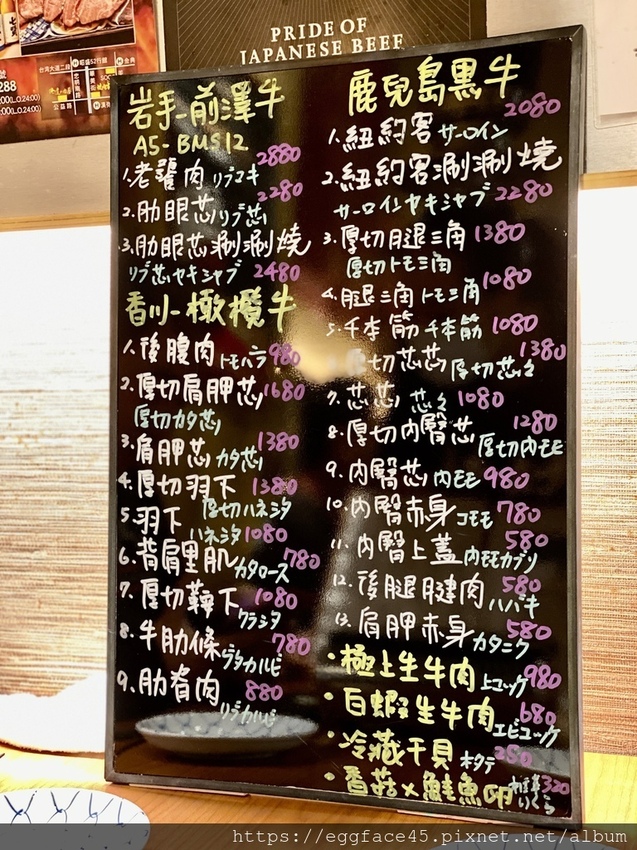 PRIDE OF
JAPANESE BEEF
288
岩手-前澤牛
A5-BMS12
1.老饕肉 リブマキ 2880
2.肋眼芯 リブ芯 2280
3.肋眼芯涮涮燒
リブ芯ヤキシャブ 2480
香川-橄欖牛
1.後腹肉 トモバラ 980
2.厚切肩胛芯 1680
厚切カタ芯
3.肩胛芯 カタ芯 1380
4.厚切羽下 1380
厚切ハネシタ
5.羽下 ハネシタ 1080
6.背肩里肌 カタロース 780
7.厚切鞍下 1080
クラシタ
8.牛肋條 780
ゲタカルビ
9.肋脊肉 880
リブカルビ
鹿兒島黒牛
1.紐約客 サーロイン 2080
2.紐約客涮涮燒
サーロインヤキシャブ 2280
3.厚切腿三角 1380
厚切トモ三角
4.腿三角 トモ三角 1080
5.千本筋 千本筋 1080
厚切芯芯 厚切芯々 1380
7.芯芯 芯々 1080
8.厚切內臀芯 1280
厚切内モモ
9.內臀芯 内モモ 980
10.內臀赤身 コモモ 780
11.內臀上蓋 内モモカブリ 580
12.後腿腱肉 ハバキ 580
13.肩胛赤身 カタニク 580
・極上生牛肉 上ユッケ 980
・白蝦生牛肉 エビユッケ 680
・冷藏干貝 ホタテ 280
・香菇×鮭魚卵 いくら 320
https://eggface45.pixnet.net/album